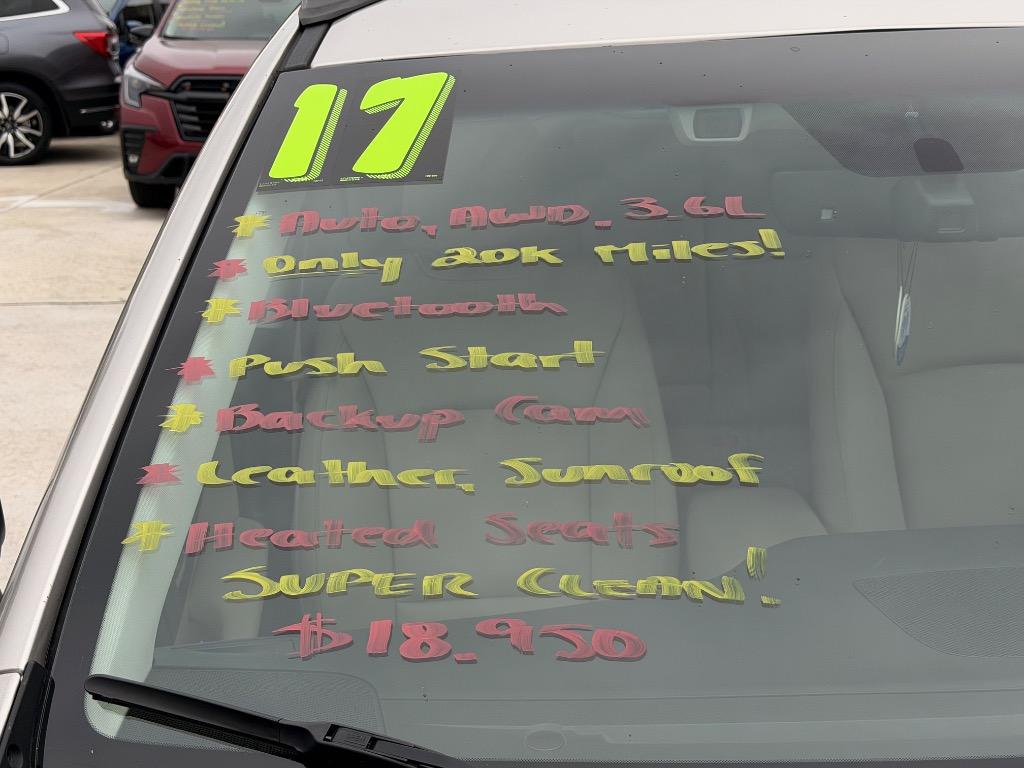 17
* Auto, AWD. 3.6L
* Only 20K Miles!
* Bluetooth
* Push Start
* Backup Cam
* Leather, Sunroof
* Heated Seats
SUPER CLEAN!
$18.950